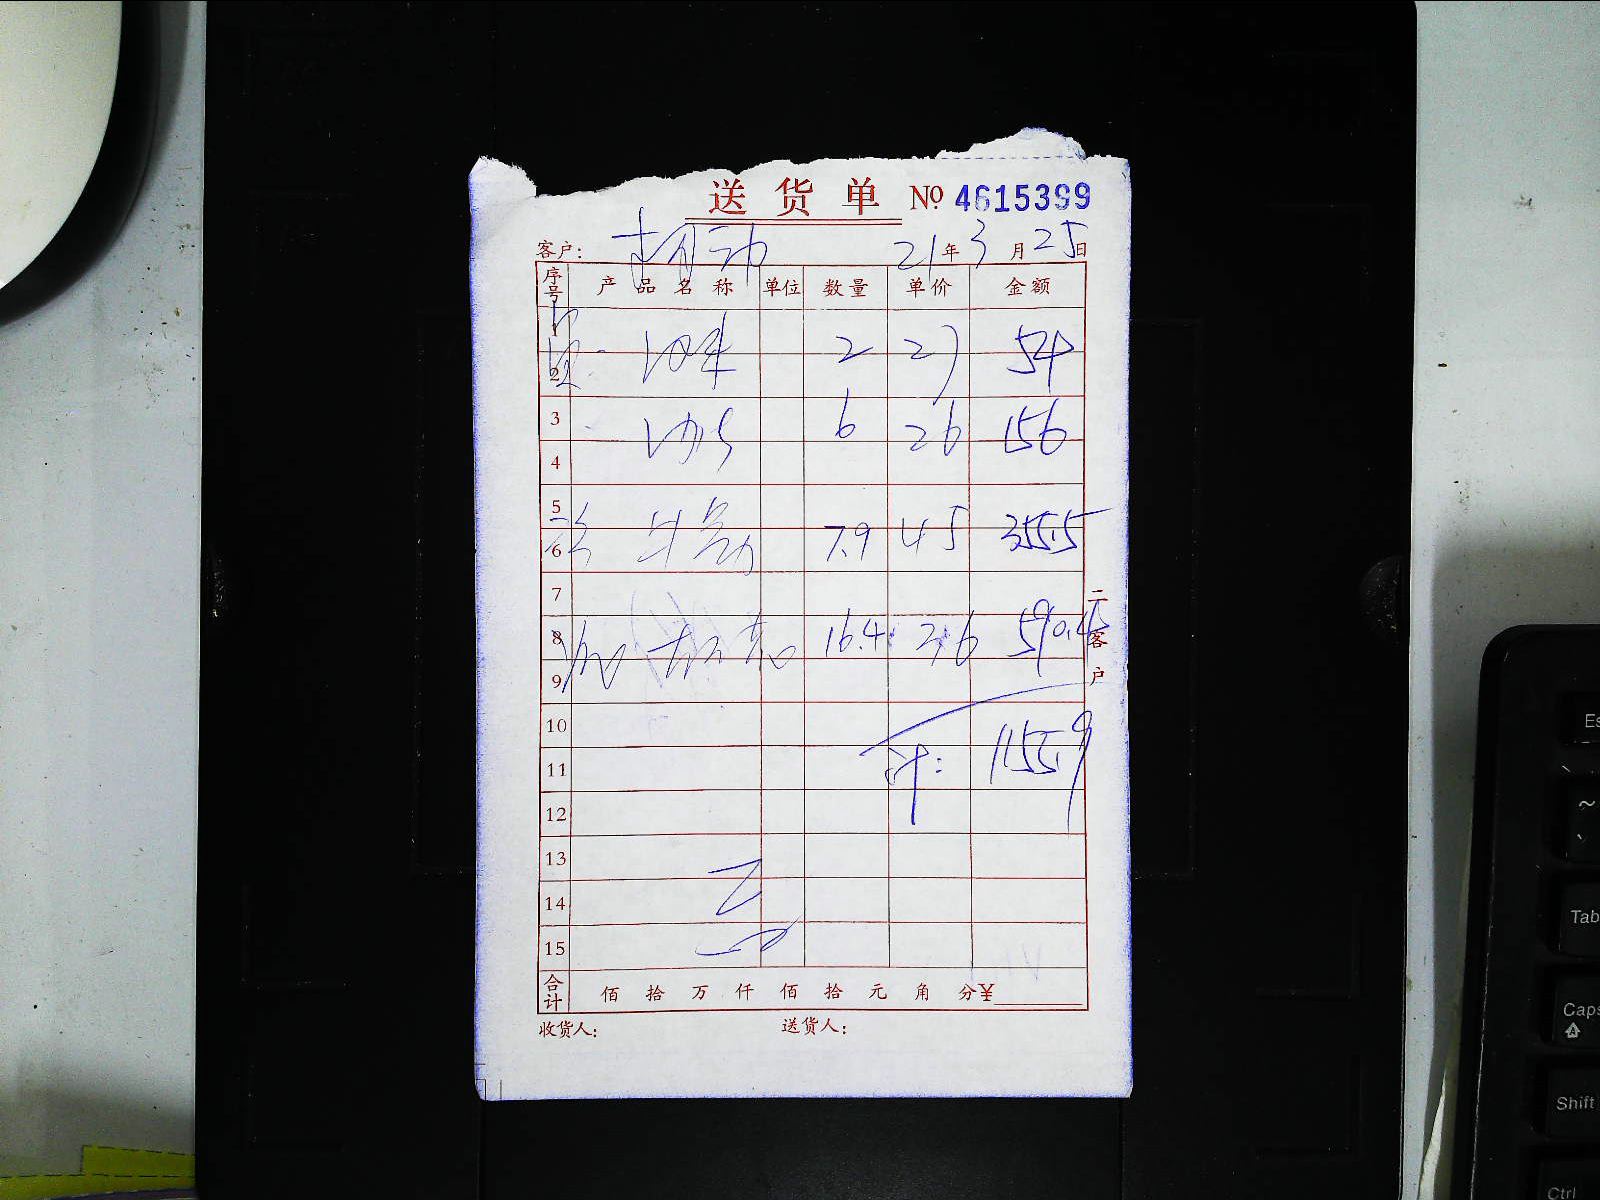 送货单 № 4615399
客户： 21年3月25日
序号 产品名称 单位 数量 单价 金额
1
2 2 27 54
3 6 26 156
4
5
6 牛 7.9 45 355.5
7
8 16.4 36 590.4
9
10
11 计： 1155.9
12
13
14
15
合计 佰 拾 万 仟 佰 拾 元 角 分 ¥
收货人： 送货人：
二 客户
Es
~
Tab
Caps
Shift
Ctrl